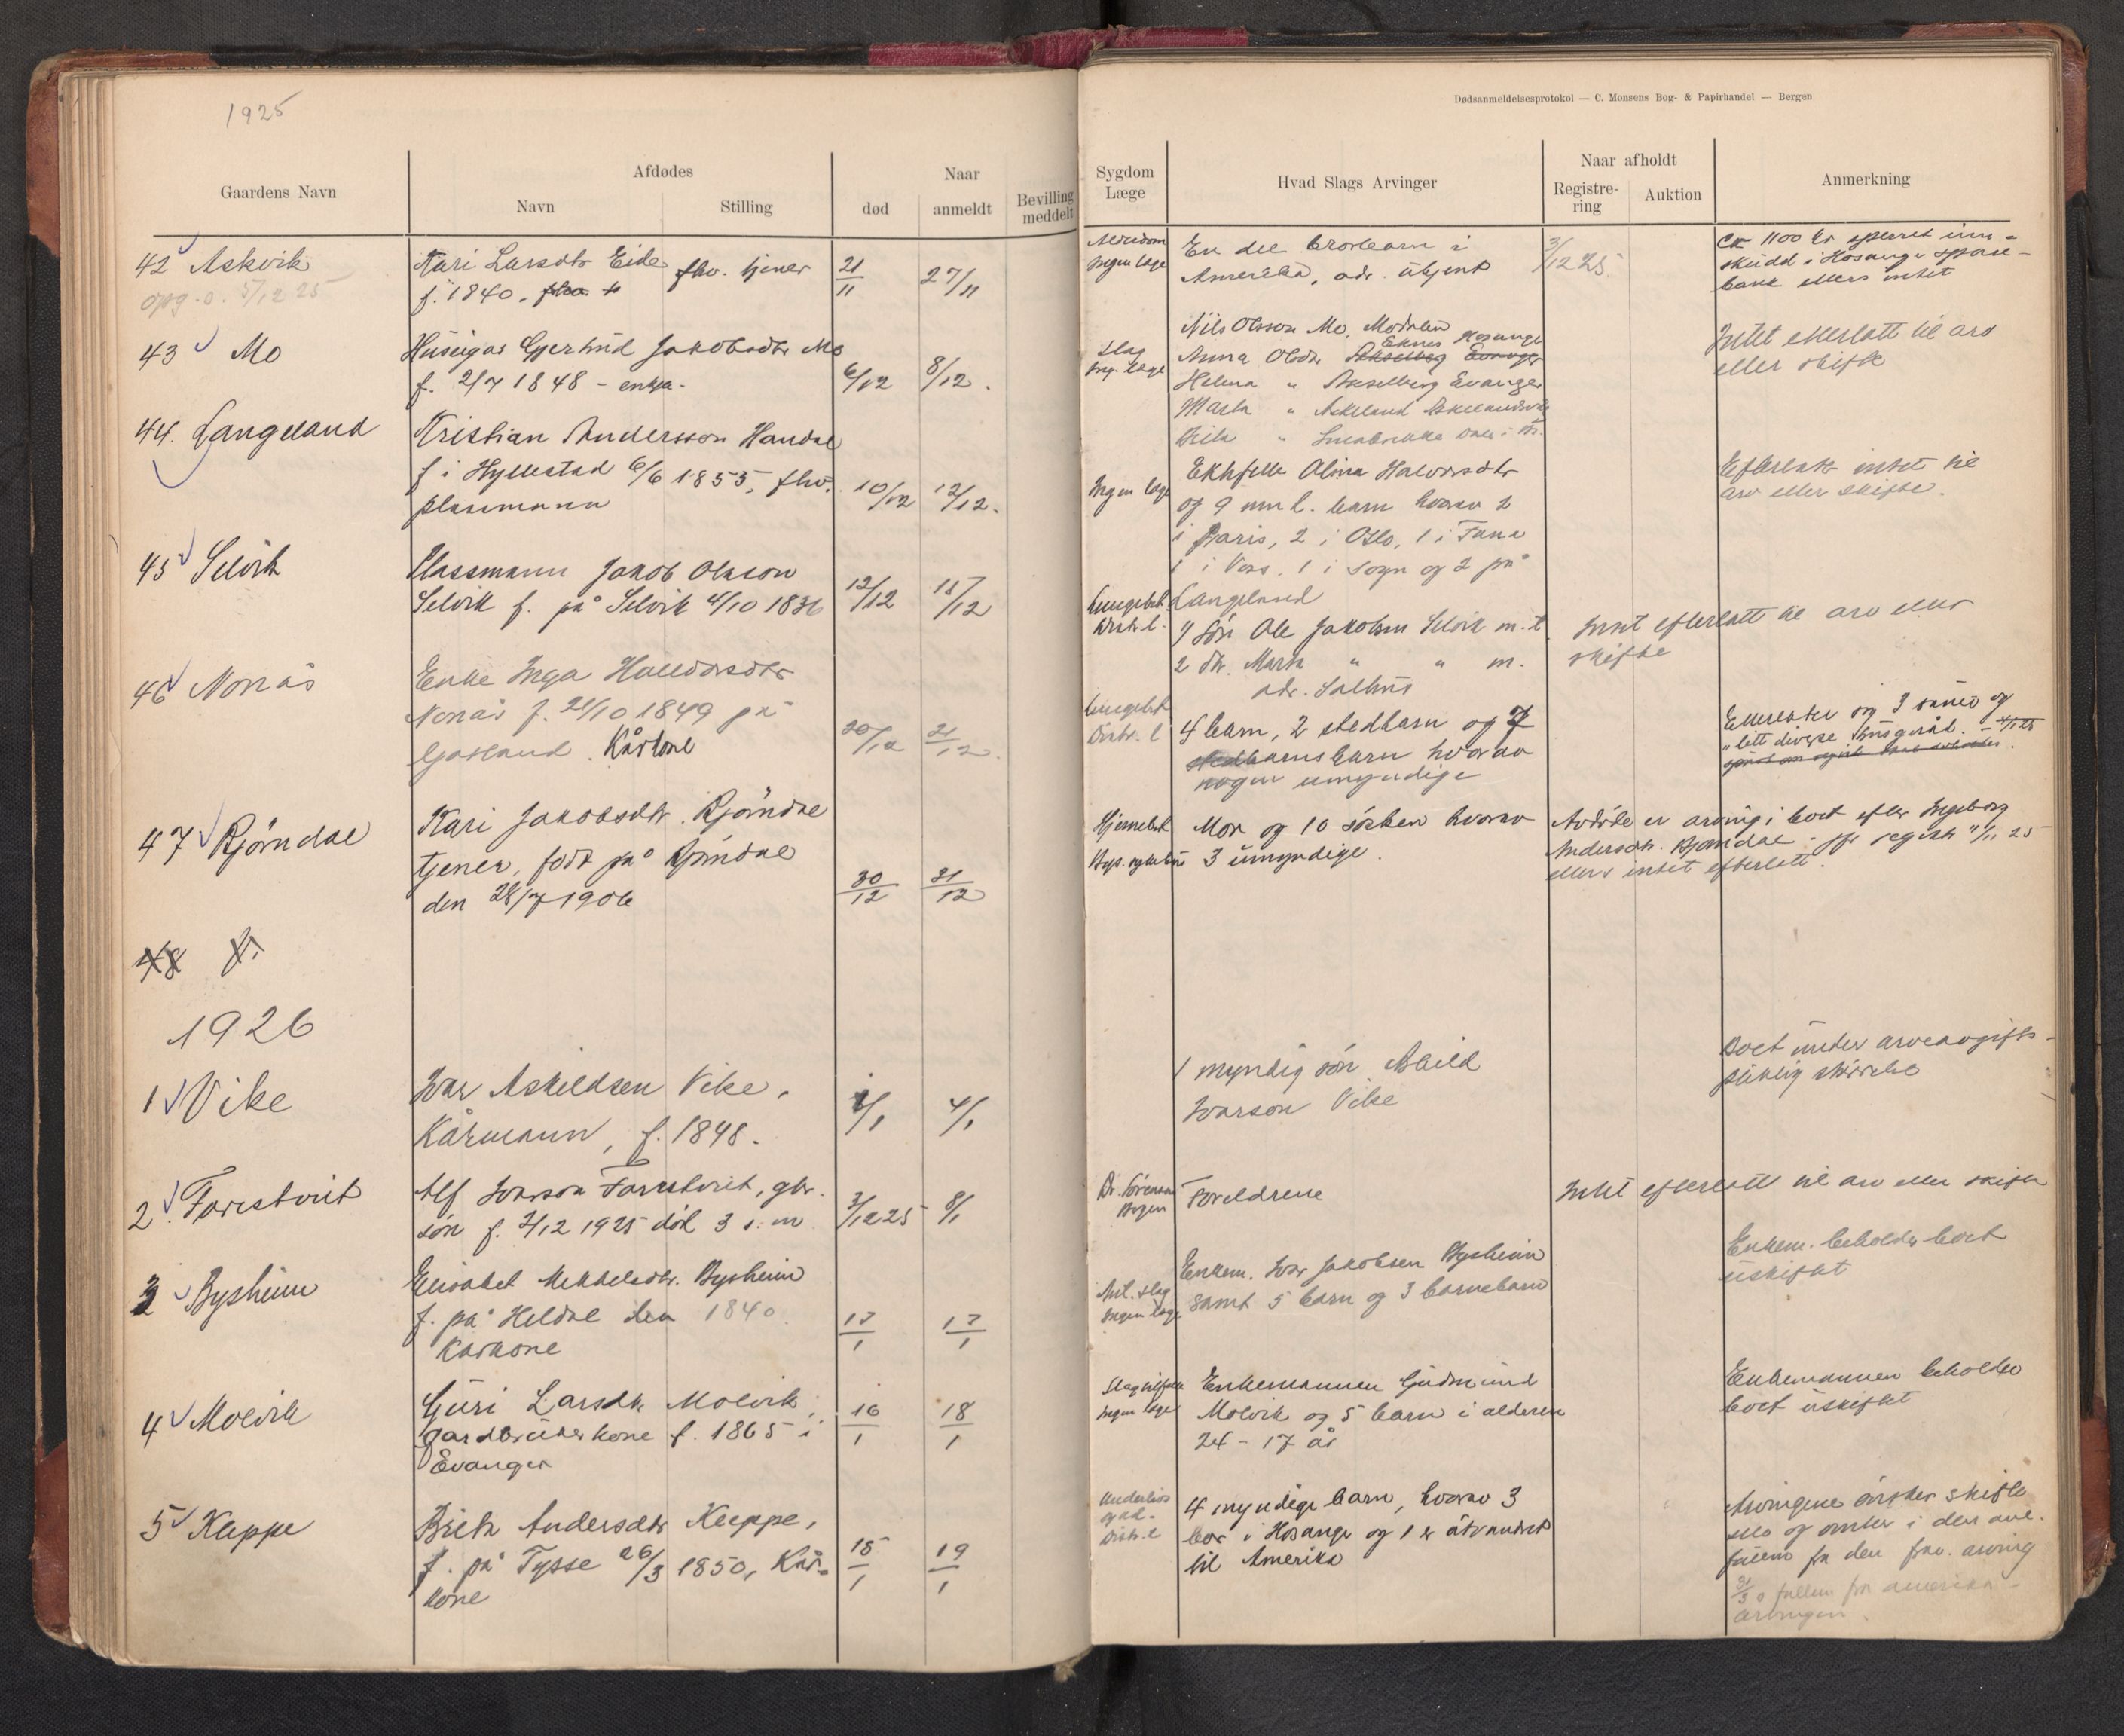 1925
Dødsanmeldelsesprotokol — C. Monsens Bog- & Papirhandel — Bergen
Gaardens Navn
Afdødes
Navn
Stilling
Naar
død
anmeldt
Bevilling meddelt
Sygdom
Læge
Hvad Slags Arvinger
Naar afholdt
Registre-
ring
Auktion
Anmerkning
42 Askvik
Kari Larsdtr Eide fhv. tjener
f. 1840,
21/11 27/11
Alderdom
Ingen læge
En del brorbarn i
Amerika, adr. ukjent
3/12 25
Ca 1100 kr sperret inn-
skudd i Hosanger spare-
bank ellers intet
opg. o. 5/12 25
43 Mo
Huseigar Gjertrud Jakobsdtr Mo
f. 2/7 1848 - enkja -
6/12 8/12.
Slag
Ing. læge
Nils Olsson Mo, Modalen
Eknes Hosanger
Anna Olsdr Akselberg Evanger
Helena " Akselberg Evanger
Marta " Askeland
Brita "
Intet etterlatt til arv
eller skifte
44. Langeland
Kristian Andersson Handal
f i Hyllestad 6/6 1855, fhv.
plassmann
10/12 12/12.
Ingen læge
Ektefelle Alina Halvorsdtr
og 9 barn hvorav 2
i Paris, 2 i Oslo, 1 i Fana
1 i Voss, 1 i Sogn og 2 på
Langeland
Efterlater intet til
arv eller skifte.
45 Selvik
Plassmann Jakob Olason
Selvik f. på Selvik 4/10 1836
12/12 15/12
Lungebet.
Distr. l.
1) søn Ole Jakobsen Selvik m.t
2 dtr. Marta " " m.
adr. Salhus
Intet efterlatt til arv eller
skifte
46 Nonås
Enke Inga Halvorsdtr
Nonås f. 21/10 1849 på
Gjasland. Kårkone
20/12 21/12.
Lungebet
Distr. l
4 barn, 2 stedbarn og 7
stedbarnsbarn hvorav
nogen umyndige
Efterlater sig 3 sauer og
litt diverse husgeråd. -
47 Bjørndal
Kari Jakobsdtr. Bjørndal
tjener, født på Bjørndal
den 28/7 1906
30/12 31/12
Hjernebet
Mor og 10 søsken hvorav
3 umyndige.
Avdøde er arving i boet efter Ingeborg
Andersdtr. Bjørndal jfr registr 11/11 25
ellers intet efterlatt.
48
1926
1 Vike
Ivar Askildsen Vike,
Kårmann, f. 1848.
1/1 4/1
1 myndig søn Askild
Ivarson Vike
Boet under arveavgifts-
pliktig størrelse
2. Farestveit
Alf Ivarson Farestveit, gbr.
søn f. 2/12 1925 død 3 s. m
3/12 25 8/1
Dr. Sørensen
Foreldrene
Intet efterlatt til arv eller skifte
3 Bysheim
Elisabet Mikkelsdtr. Bysheim
f. på Heldal den 1840
Kårkone
13/1 17/1
Ant. slag
Ingen læge
Enkem. Ivar Jakobsen Bysheim
samt 5 barn og 3 barnebarn
Enkem. beholder boet
uskiftet
4 Molvik
Guri Larsdtr Molvik,
Gardbrukerkone f. 1865 i
Evanger
16/1 18/1
Slagtilfelle
Ingen læge
Enkemannen Gudmund
Molvik og 5 barn i alderen
24 - 17 år
Enkemannen beholder
boet uskiftet
5 Kleppe
Brita Andersdtr Kleppe,
f. på Tysse 26/3 1850, Kår-
kone
15/1 19/1
Distr. l
4 myndige barn, hvorav 3
bor i Hosanger og 1 er utvandret
til Amerika
Arvingene ønsker skifte
fra den arving
31/3 o fullm fra amerika-
arvingen.